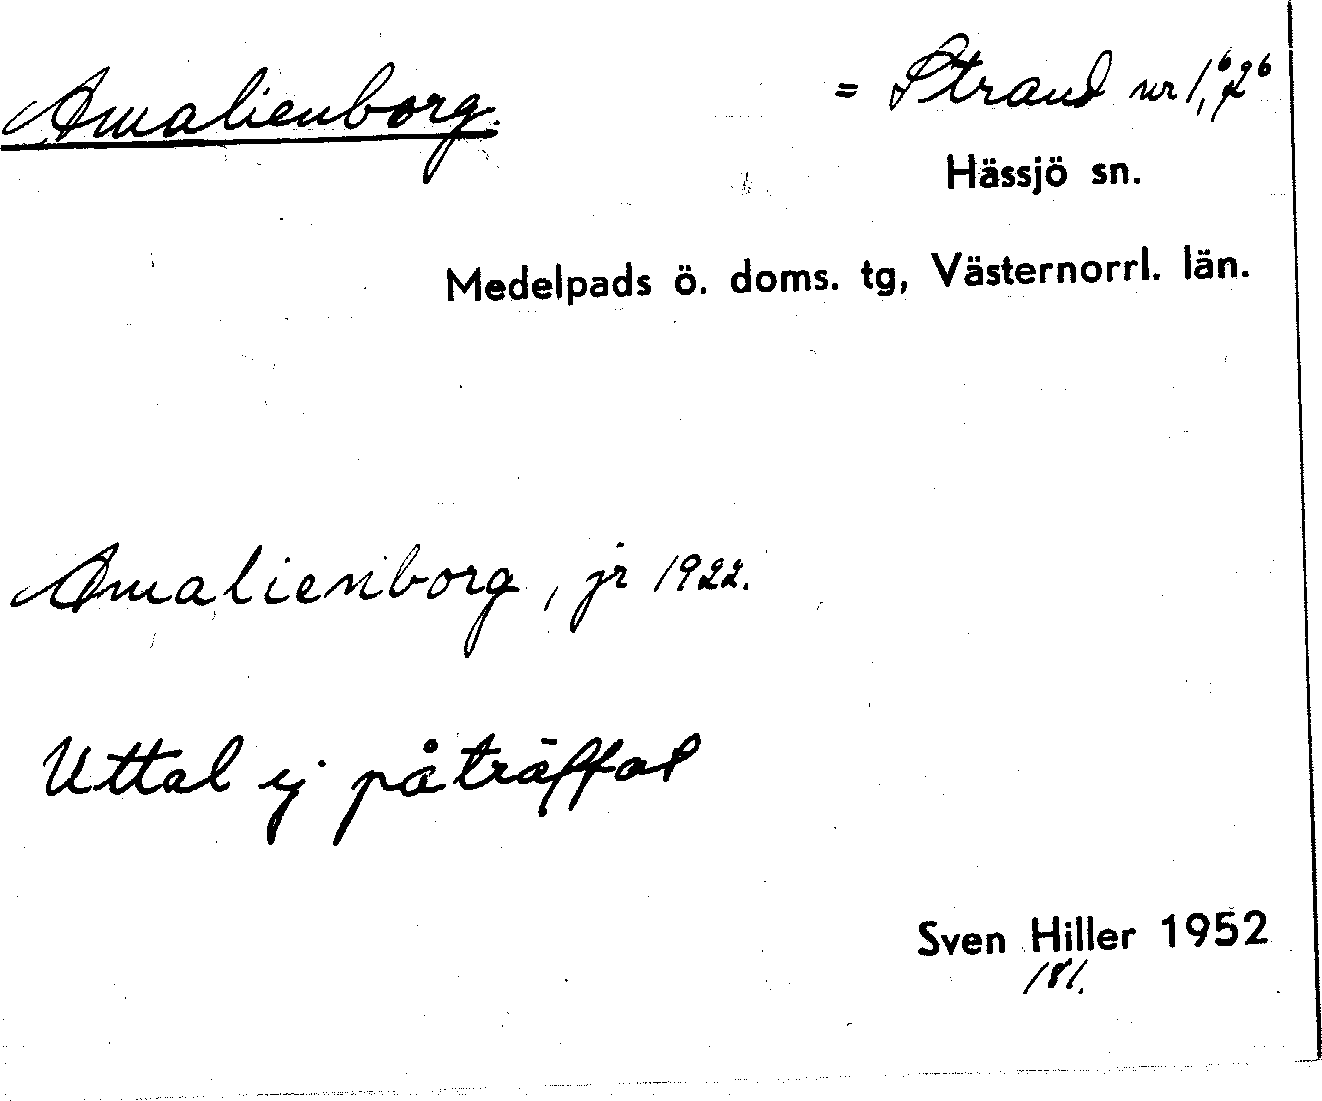 Amalienborg. = Strand nr 1,⁶ 2⁶
Hässjö sn.
Medelpads ö. doms. tg, Västernorrl. län.
Amalienborg, jr 1922.
Uttal ej påträffat
Sven Hiller 1952
181.